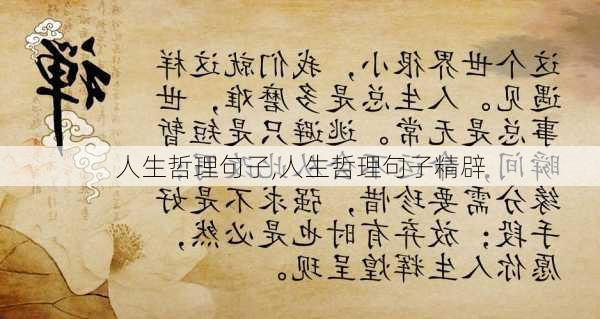 禅
这个世界很小，我们就这样
遇见。人生总是多磨难，世
事总是无常。逃避只是短暂
瞬间，
人生哲理句子,人生哲理句子精辟
缘分需要珍惜，强求不是好
手段；放弃有时也是必然，
愿你人生辉煌呈现。